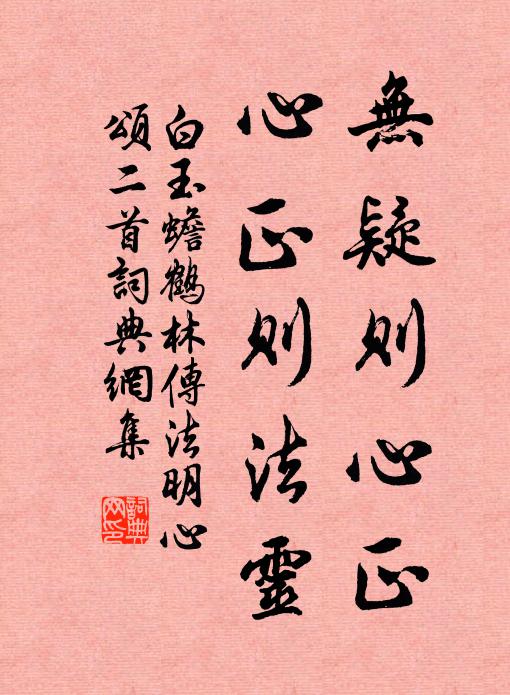 無疑则心正
心正则法靈
白玉蟾鶴林傳法明心
頌二首詞典網集
詞典
网印